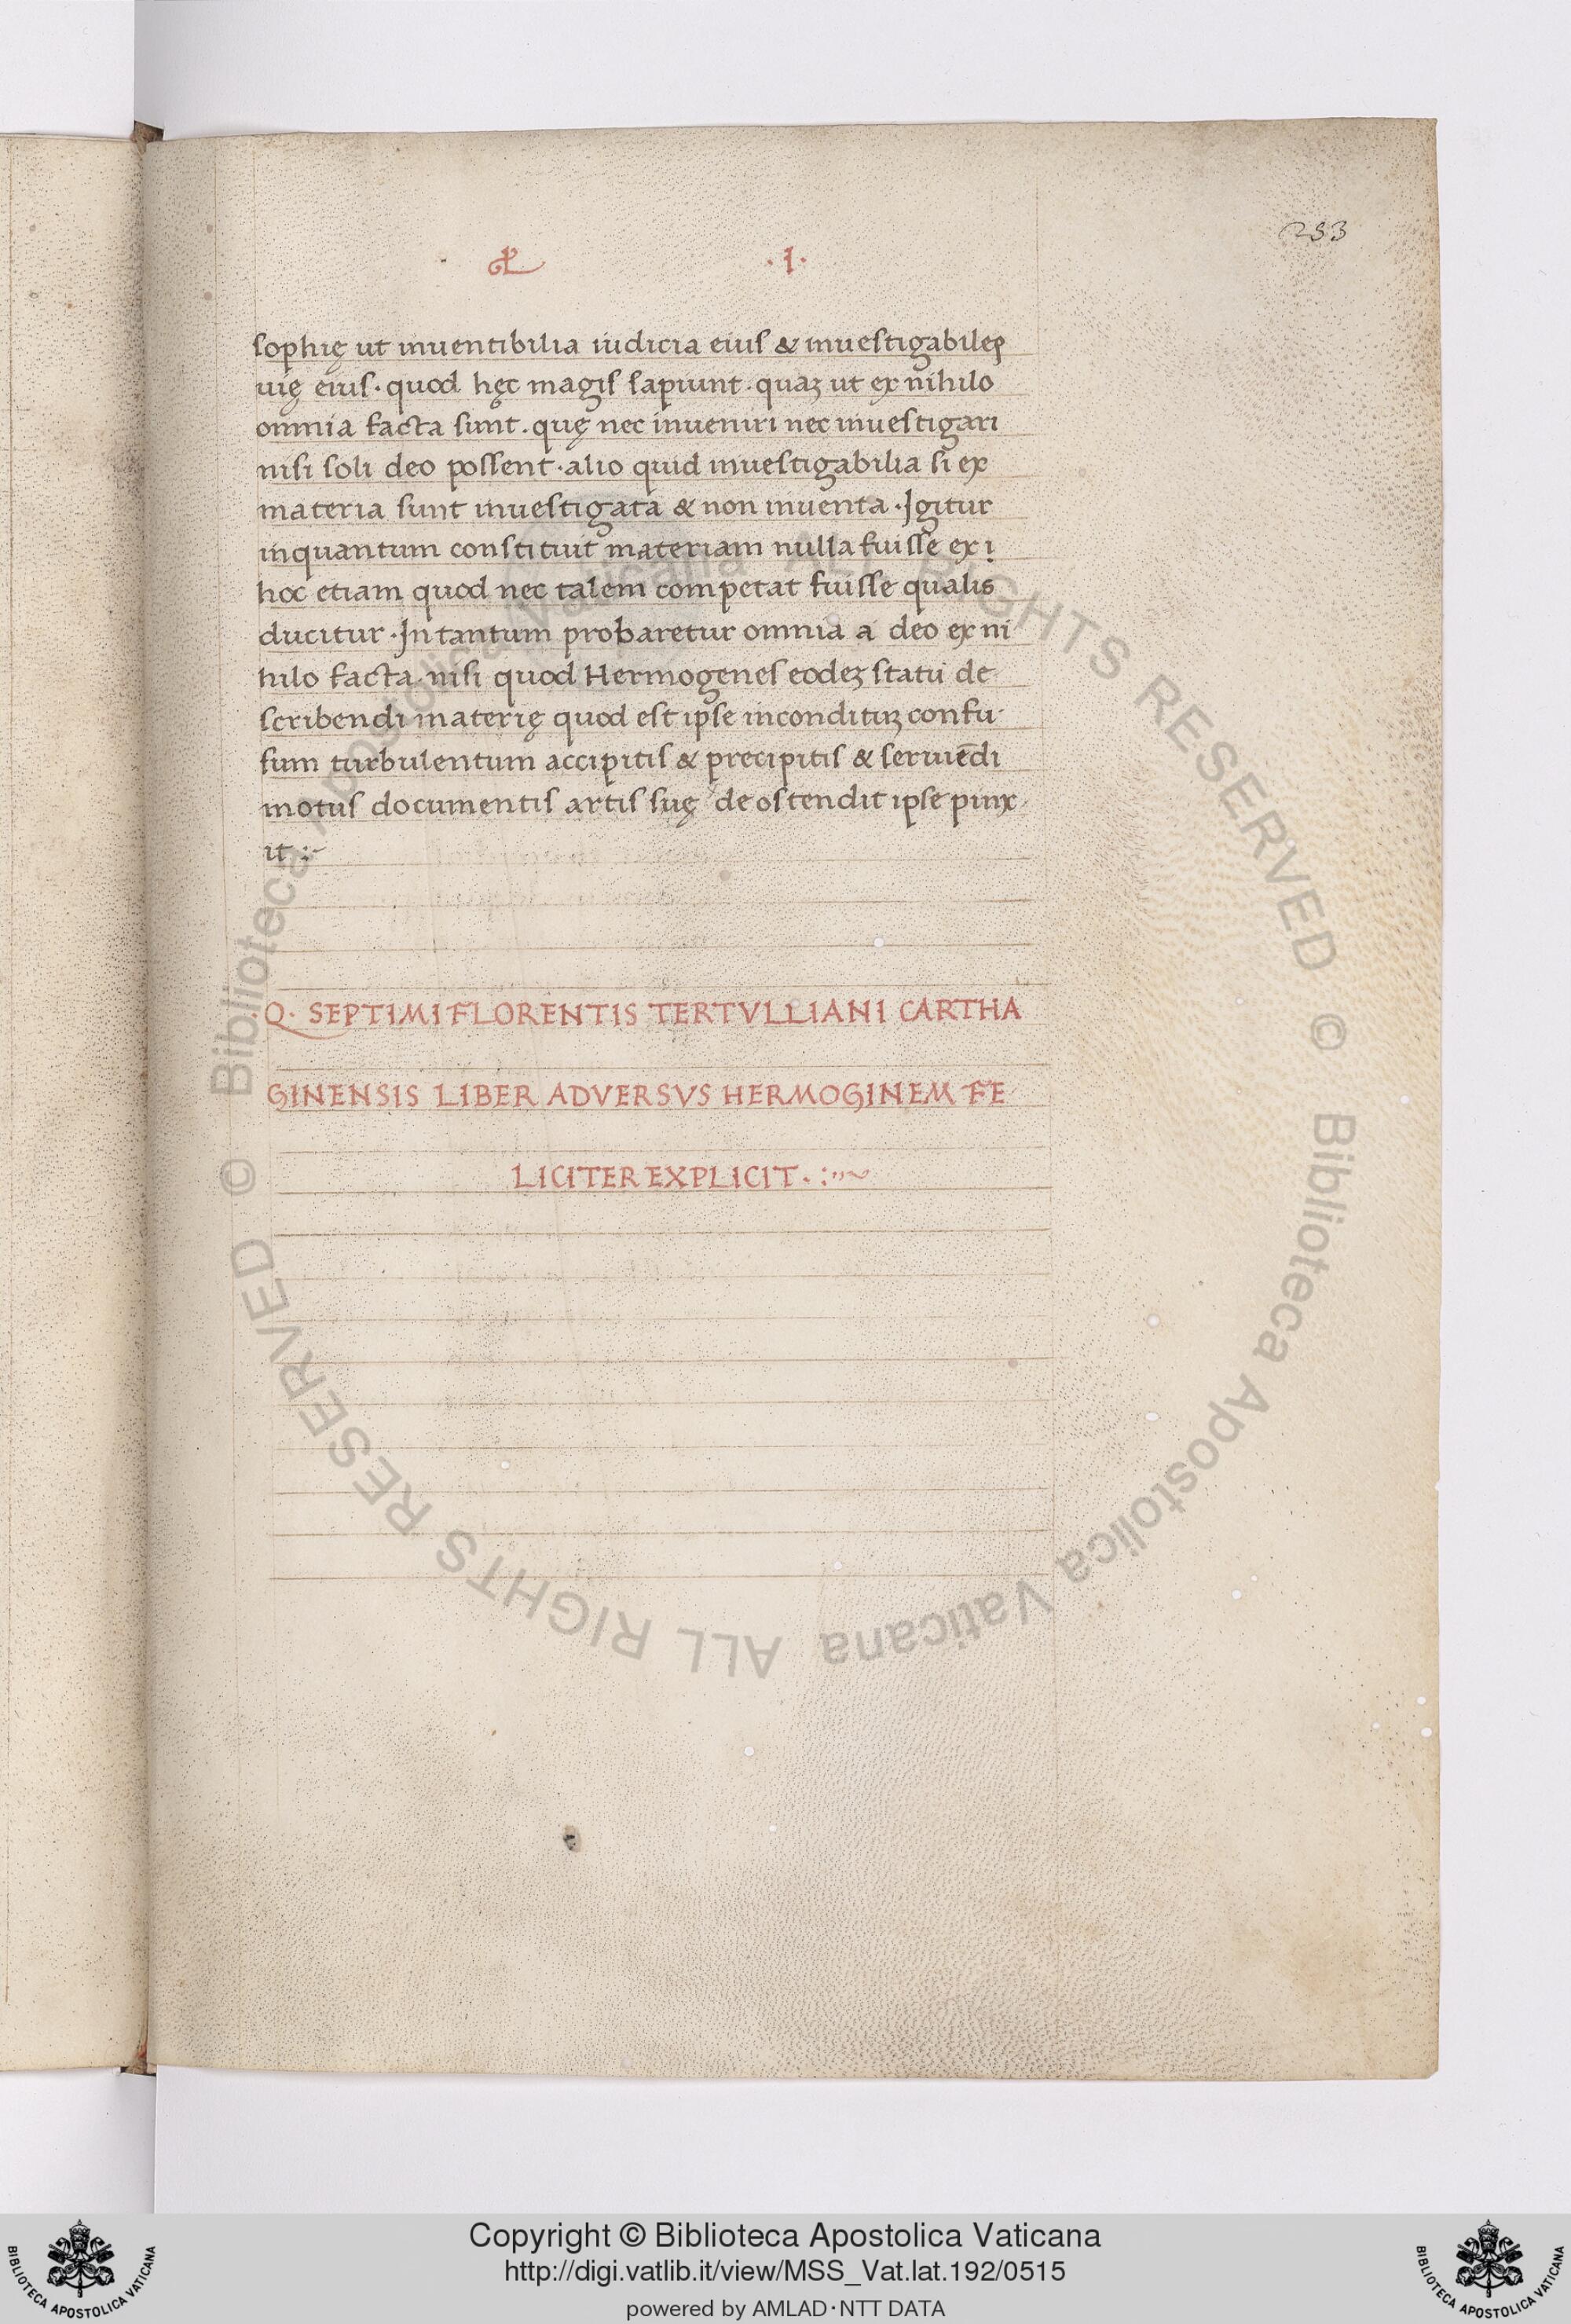 253
·I·
sophię ut inuentibilia iudicia eius & inuestigabiles
uię eius · quod hęc magis sapiunt · quaꝫ ut ex nihilo
omnia facta sunt · quę nec inueniri nec inuestigari
nisi soli deo possent · alio quid inuestigabilia si ex
materia sunt inuestigata & non inuenta · Igitur
inquantum constituit materiam nulla fuisse ex
hoc etiam quod nec talem competat fuisse qualis
ducitur · In tantum probaretur omnia a deo ex ni
hilo facta · nisi quod Hermogenes eodeꝫ statu de
scribendi materię quod est ipse inconditūꝫ confu-
sum turbulentum accipitis & precipitis & seruēdi
motus documentis artis suę de ostendit ipse pinx-
it :~
·Q· SEPTIMI FLORENTIS TERTVLLIANI CARTHA
GINENSIS LIBER ADVERSVS HERMOGINEM FE
LICITER EXPLICIT · :"~
© Biblioteca Apostolica Vaticana ALL RIGHTS RESERVED
© Biblioteca Apostolica Vaticana ALL RIGHTS RESERVED
Copyright © Biblioteca Apostolica Vaticana
http://digi.vatlib.it/view/MSS_Vat.lat.192/0515
powered by AMLAD·NTT DATA
BIBLIOTECA APOSTOLICA VATICANA
BIBLIOTECA APOSTOLICA VATICANA